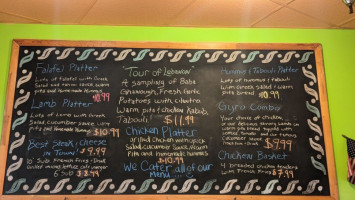 Falafel Platter
Lots of Falafel with Greek
Salad and tahini sauce, warm
pita and Homemade Hummus
10.99
Lamb Platter
Lots of Lamb with Greek
Salad, Cucumber sauce, warm
pita and Homemade Hummus
$10.99
Best Steak & Cheese
in Town! $9.99
10" Sub, French Fries & Drink
Grilled onions, lettuce, only
6" Sub $
Tour of Lebanon
A Sampling of Baba
Ghanough, Fresh Garlic
Potatoes with Cilantro
Warm pita & Chicken Kabob
Tabouli! $11.99
Chicken Platter
Chicken with Greek
Salad, Cucumber Sauce, Warm
Pita and Homemade Hummus
$10.99
We Cater all of our
Menu
Hummus & Tabouli Platter
Lots of Hummus & Tabouli
with Greek Salad & Warm
pita bread 10.99
Gyro Combo
Your choice of Chicken
in warm pita bread topped with
$9.99
Chicken Basket
4 breaded chicken tenders
with French Fries $7.99